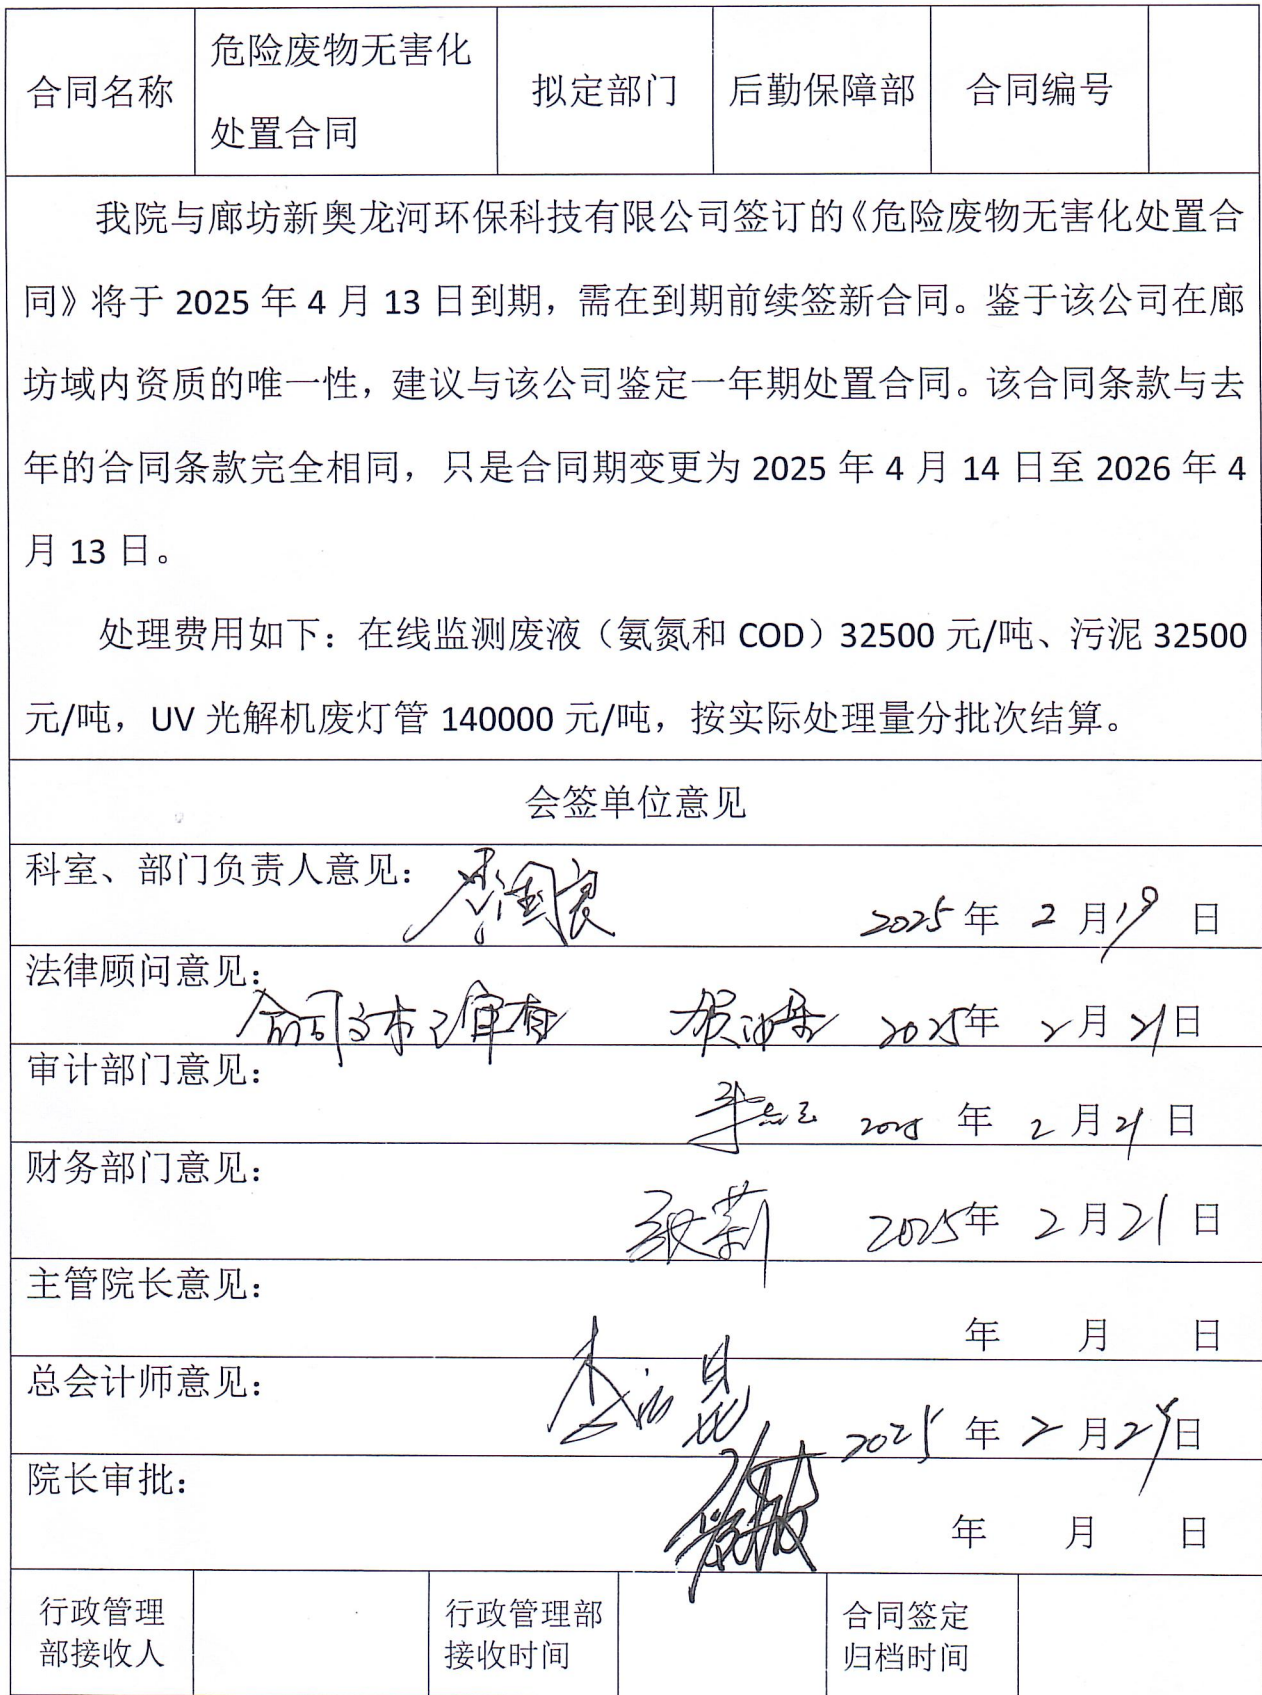 合同名称 危险废物无害化处置合同 拟定部门 后勤保障部 合同编号
我院与廊坊新奥龙河环保科技有限公司签订的《危险废物无害化处置合
同》将于 2025 年 4 月 13 日到期，需在到期前续签新合同。鉴于该公司在廊
坊域内资质的唯一性，建议与该公司鉴定一年期处置合同。该合同条款与去
年的合同条款完全相同，只是合同期变更为 2025 年 4 月 14 日至 2026 年 4
月 13 日。
处理费用如下：在线监测废液（氨氮和 COD）32500 元/吨、污泥 32500
元/吨，UV 光解机废灯管 140000 元/吨，按实际处理量分批次结算。
会签单位意见
科室、部门负责人意见：
2025 年 2 月 19 日
法律顾问意见：
合同文本已审查 2025年 2 月 21日
审计部门意见：
2025 年 2 月 21 日
财务部门意见：
张莉 2025年 2 月 21 日
主管院长意见：
年 月 日
总会计师意见：
2025 年 2 月 日
院长审批：
年 月 日
行政管理部接收人 行政管理部接收时间 合同签定归档时间